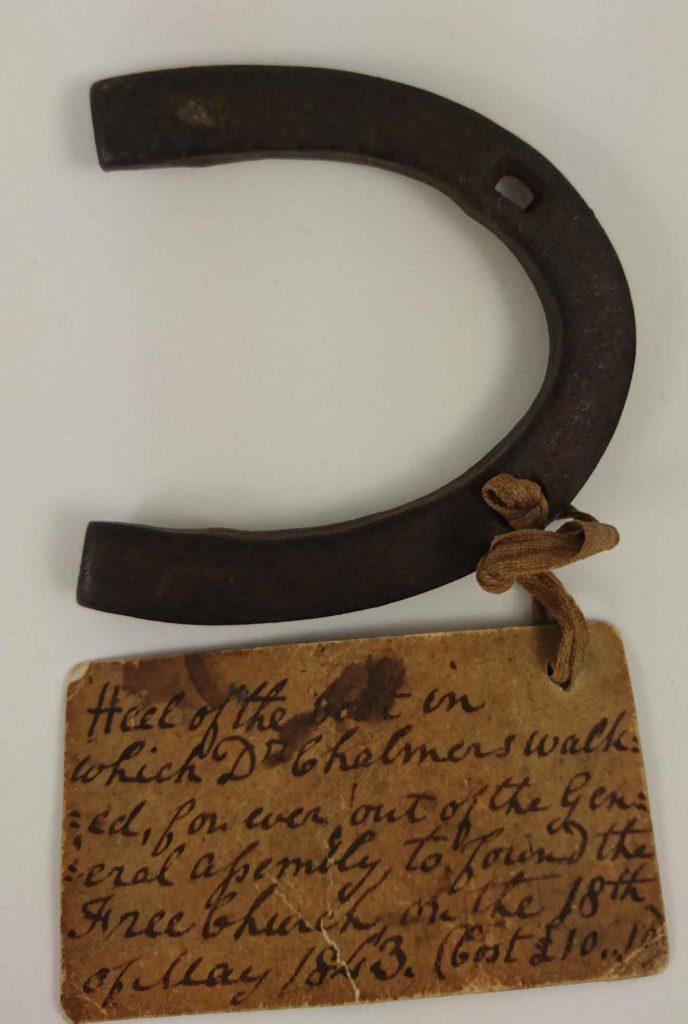 Heel of the boot in
which Dr Chalmers walk:
:ed, for ever, out of the Gen:
:eral assembly, to found the
Free Church, on the 18th
of May 1843. (Cost £10..10